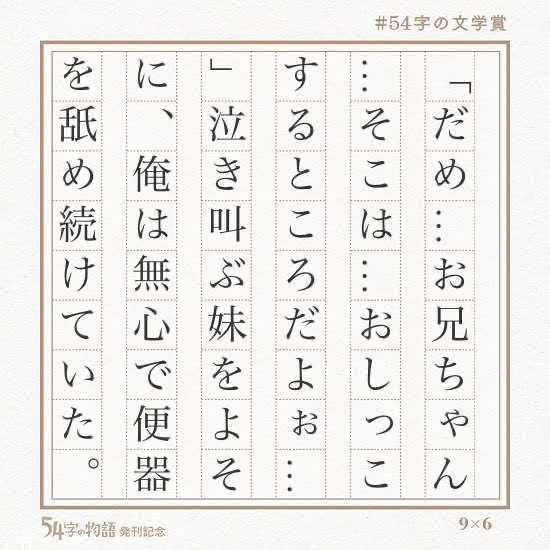 #54字の文学賞
「だめ…お兄ちゃん
…そこは…おしっこ
するところだよぉ…
」泣き叫ぶ妹をよそ
に、俺は無心で便器
を舐め続けていた。
54字の物語 発刊記念
9×6